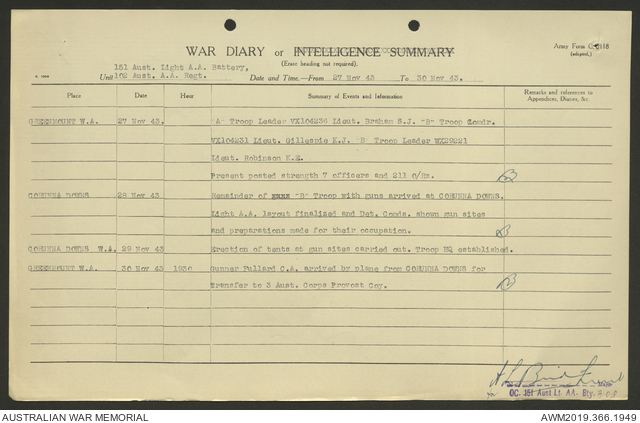 WAR DIARY or INTELLIGENCE SUMMARY
Army Form C.2118
(adapted.)
(Erase heading not required).
151 Aust. Light A.A. Battery,
Unit 102 Aust. A.A. Regt. Date and Time.—From 27 Nov 43 To 30 Nov 43.
Place Date Hour Summary of Events and Information Remarks and references to Appendices, Diaries, &c.
GREENMOUNT W.A. 27 Nov 43. "A" Troop Leader VX104236 Lieut. Braham S.J. "B" Troop Comdr.
VX104231 Lieut. Gillespie K.J. "B" Troop Leader WX29221
Lieut. Robinson K.E.
Present posted strength 7 officers and 211 O/Rs.
CORUNNA DOWNS 28 Nov 43 Remainder of "B" Troop with guns arrived at CORUNNA DOWNS.
Light A.A. layout finalized and Det. Comds. shown gun sites
and preparations made for their occupation.
CORUNNA DOWNS W.A. 29 Nov 43 Erection of tents at gun sites carried out. Troop HQ established.
GREENMOUNT W.A. 30 Nov 43 1930 Gunner Pullard C.A. arrived by plane from CORUNNA DOWNS for
Transfer to 3 Aust. Corps Provost Coy.
OC. 151 Aust Lt. AA. Bty.
AUSTRALIAN WAR MEMORIAL AWM2019.366.1949